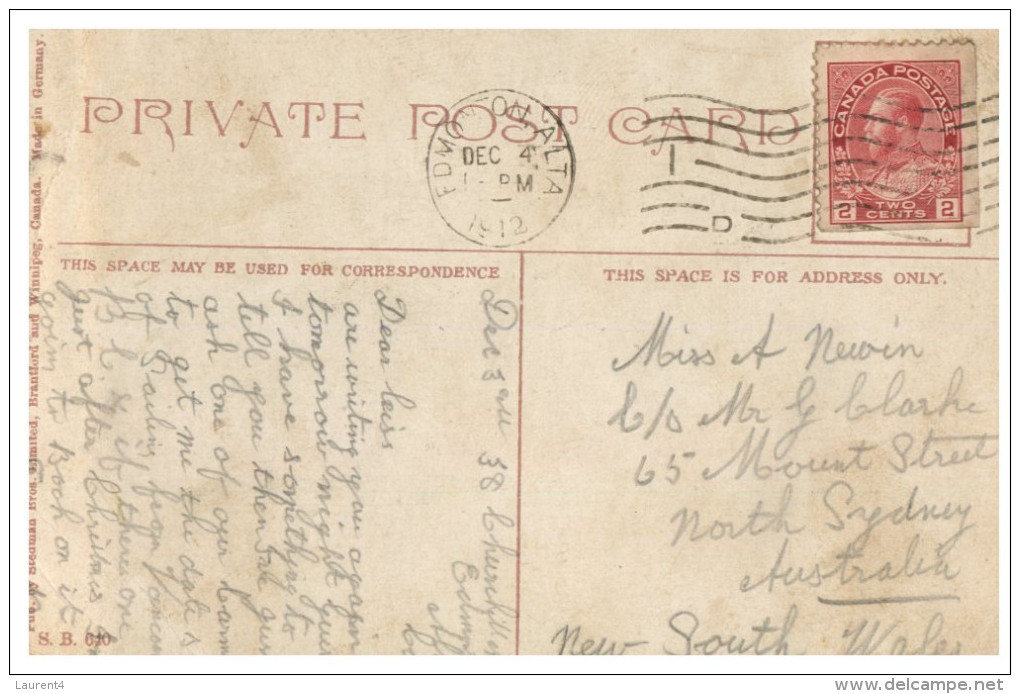 PRIVATE POST CARD
EDMONTON, ALTA
DEC 4
1 - PM
1912
CANADA POSTAGE
2 TWO CENTS 2
D
THIS SPACE MAY BE USED FOR CORRESPONDENCE
THIS SPACE IS FOR ADDRESS ONLY.
Dec 3rd 38 Churchill
Edmon
Dear
are writing you again
tomorrow night
I have something to
tell you then
ask one of our
to get me the dates
of sailing from
B.C. if there one
just after Christmas
goin to Book on it
Miss A Newin
C/o Mr G Clarke
65 Mount Street
North Sydney
Australia
New South Wales
Pub. by Stedman Bros. Limited, Brantford and Winnipeg, Canada. Made in Germany.
S. B. 640
Laurent4
www.delcampe.net